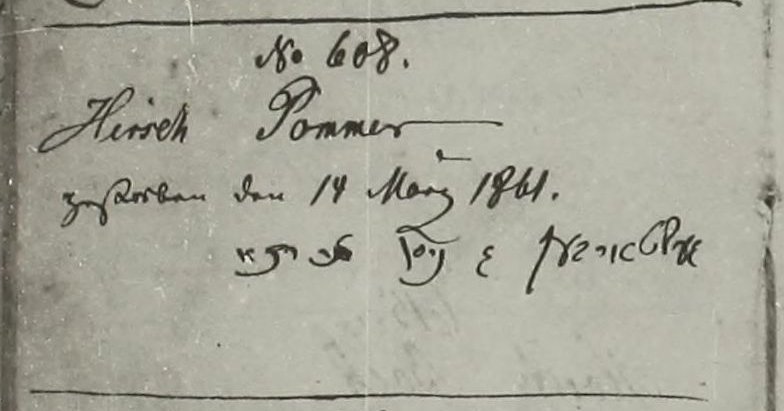 No 608.
Hirsch Pommer
gestorben den 14 März 1861.
ג ניסן